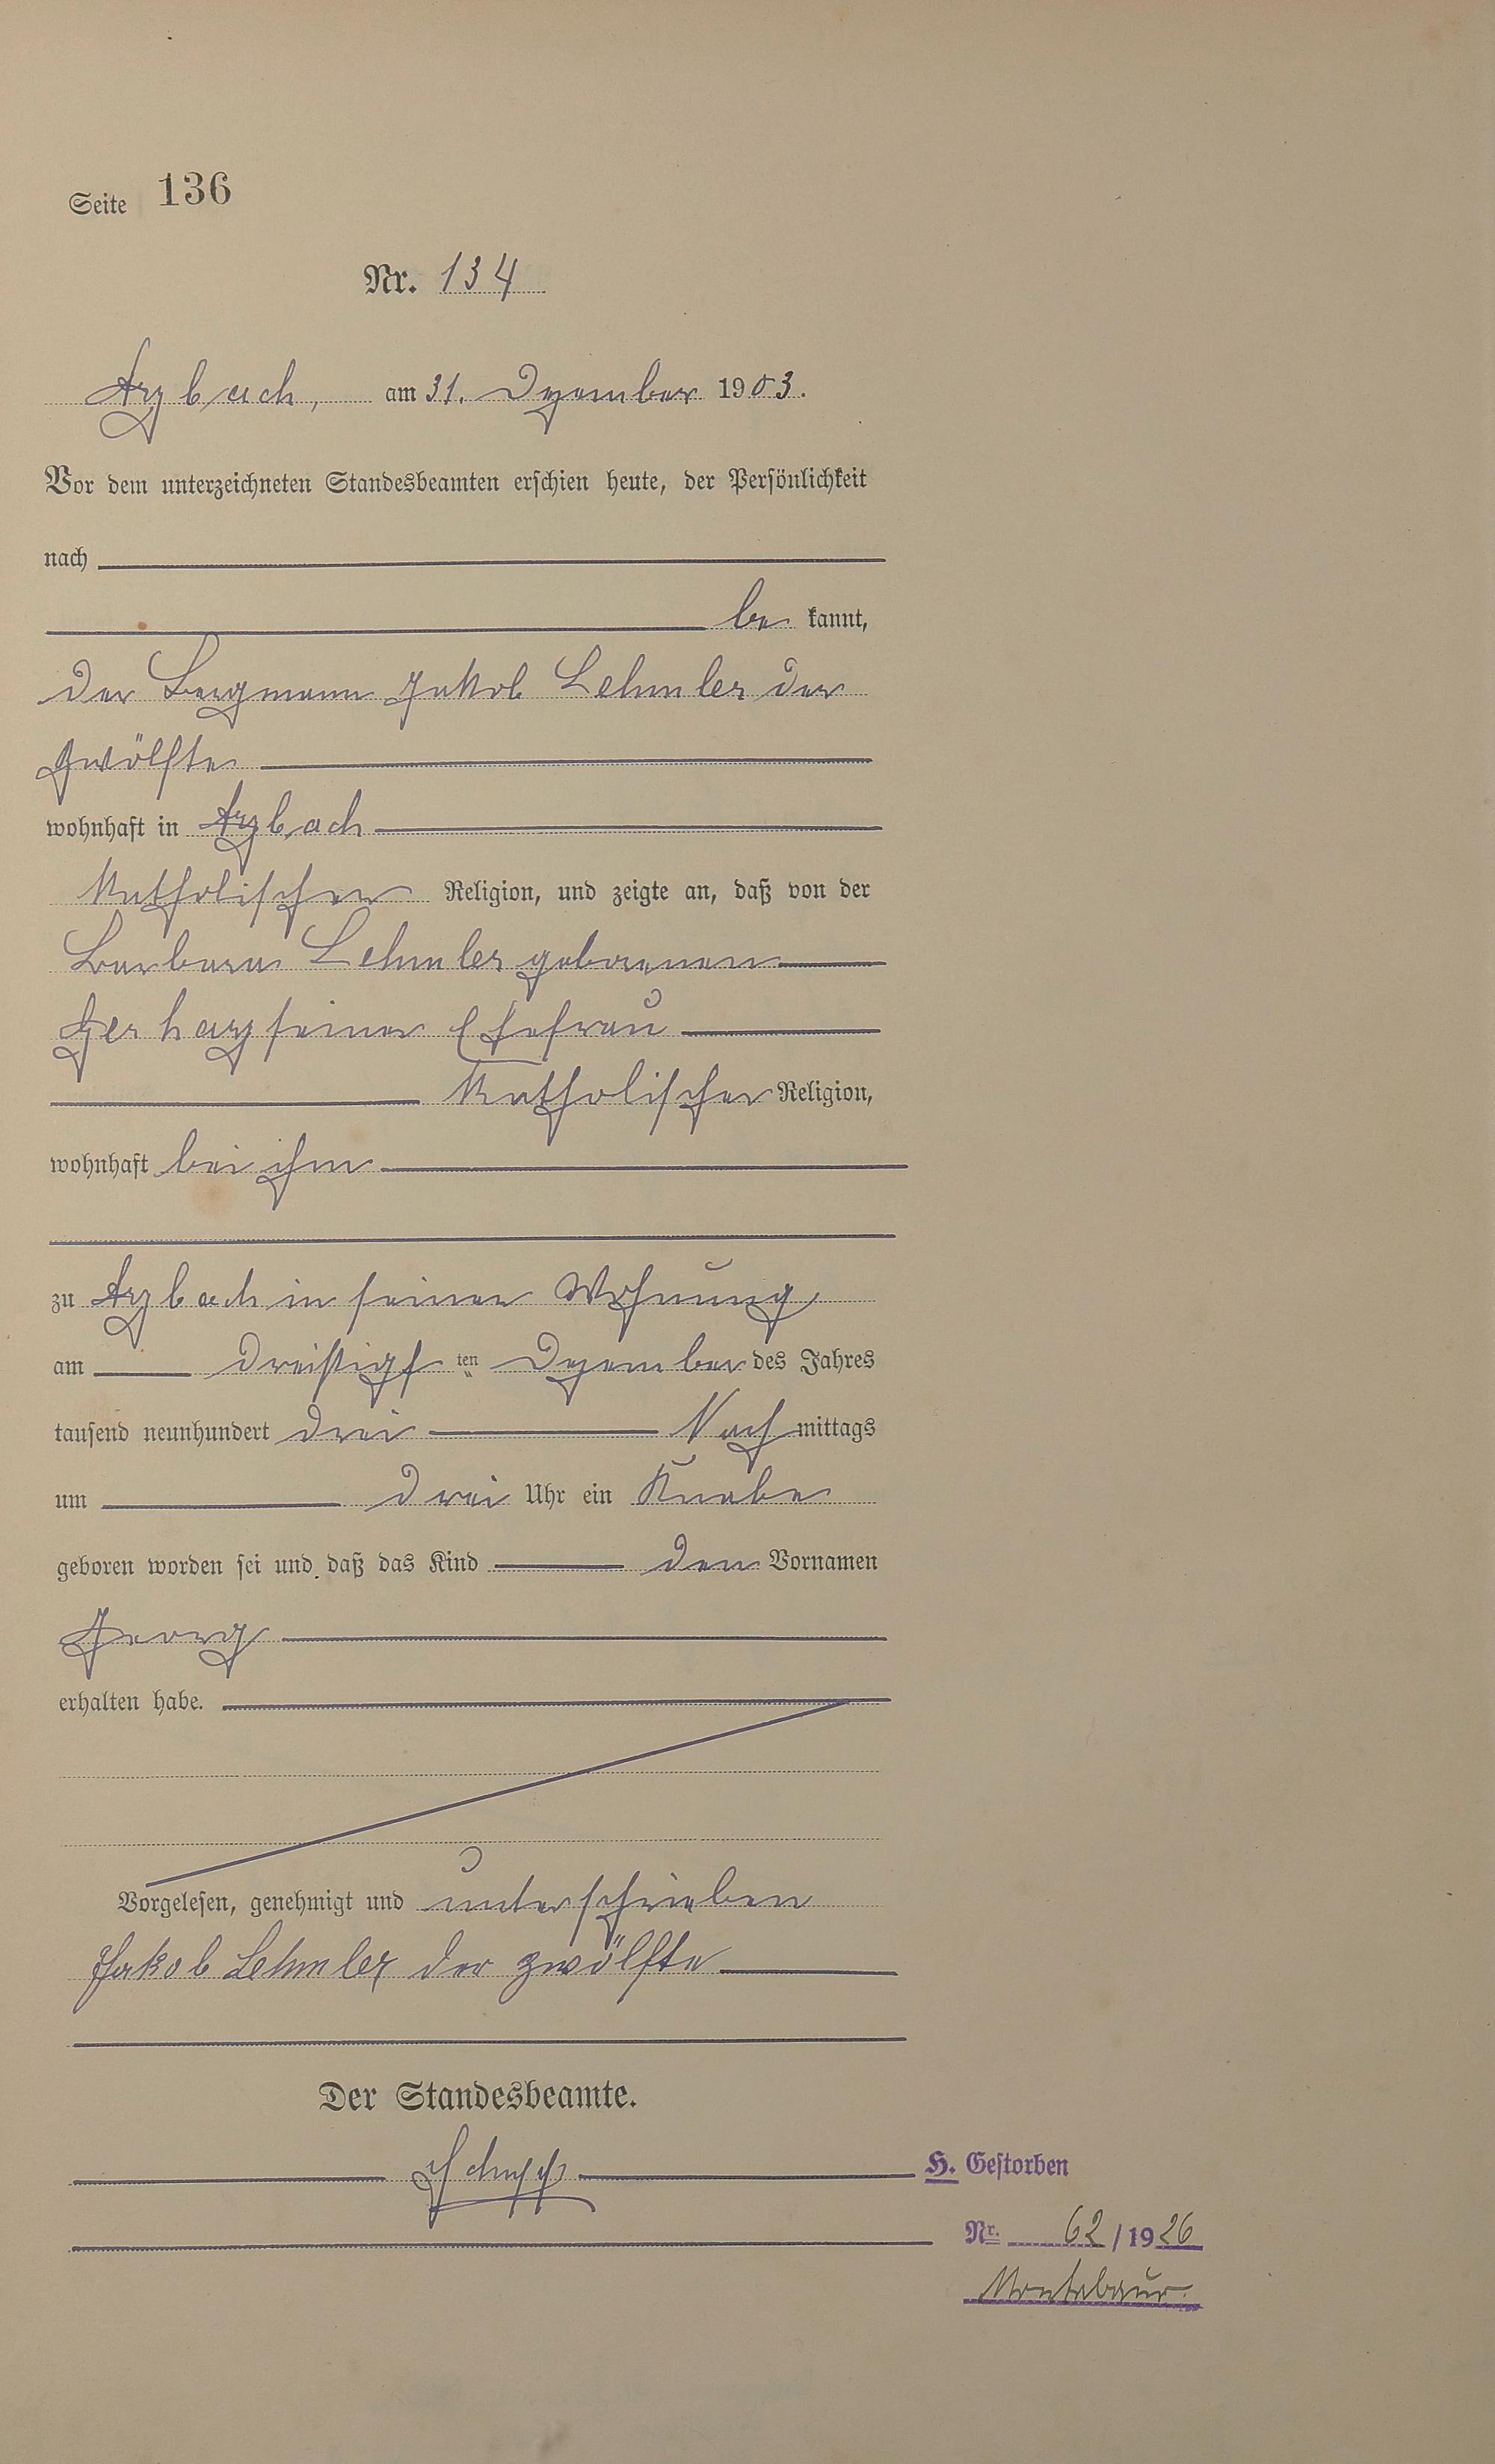 Seite 136
Nr. 134
Arzbach, am 31. Dezember 1903.
Vor dem unterzeichneten Standesbeamten erschien heute, der Persönlichkeit
nach
be kannt,
der Bergmann Jakob Lehmler der
zwölfte
wohnhaft in Arzbach
katholischer Religion, und zeigte an, daß von der
Barbara Lehmler geborenen
Gerharz seiner Ehefrau
katholischer Religion,
wohnhaft bei ihm
zu Arzbach in seiner Wohnung
am dreißigsten Dezember des Jahres
tausend neunhundert drei Nachmittags
um drei Uhr ein Knabe
geboren worden sei und daß das Kind den Vornamen
Georg
erhalten habe.
Vorgelesen, genehmigt und unterschrieben
Jakob Lehmler der zwölfte
Der Standesbeamte.
H. Gestorben
Nr. 62/1926
Montabaur